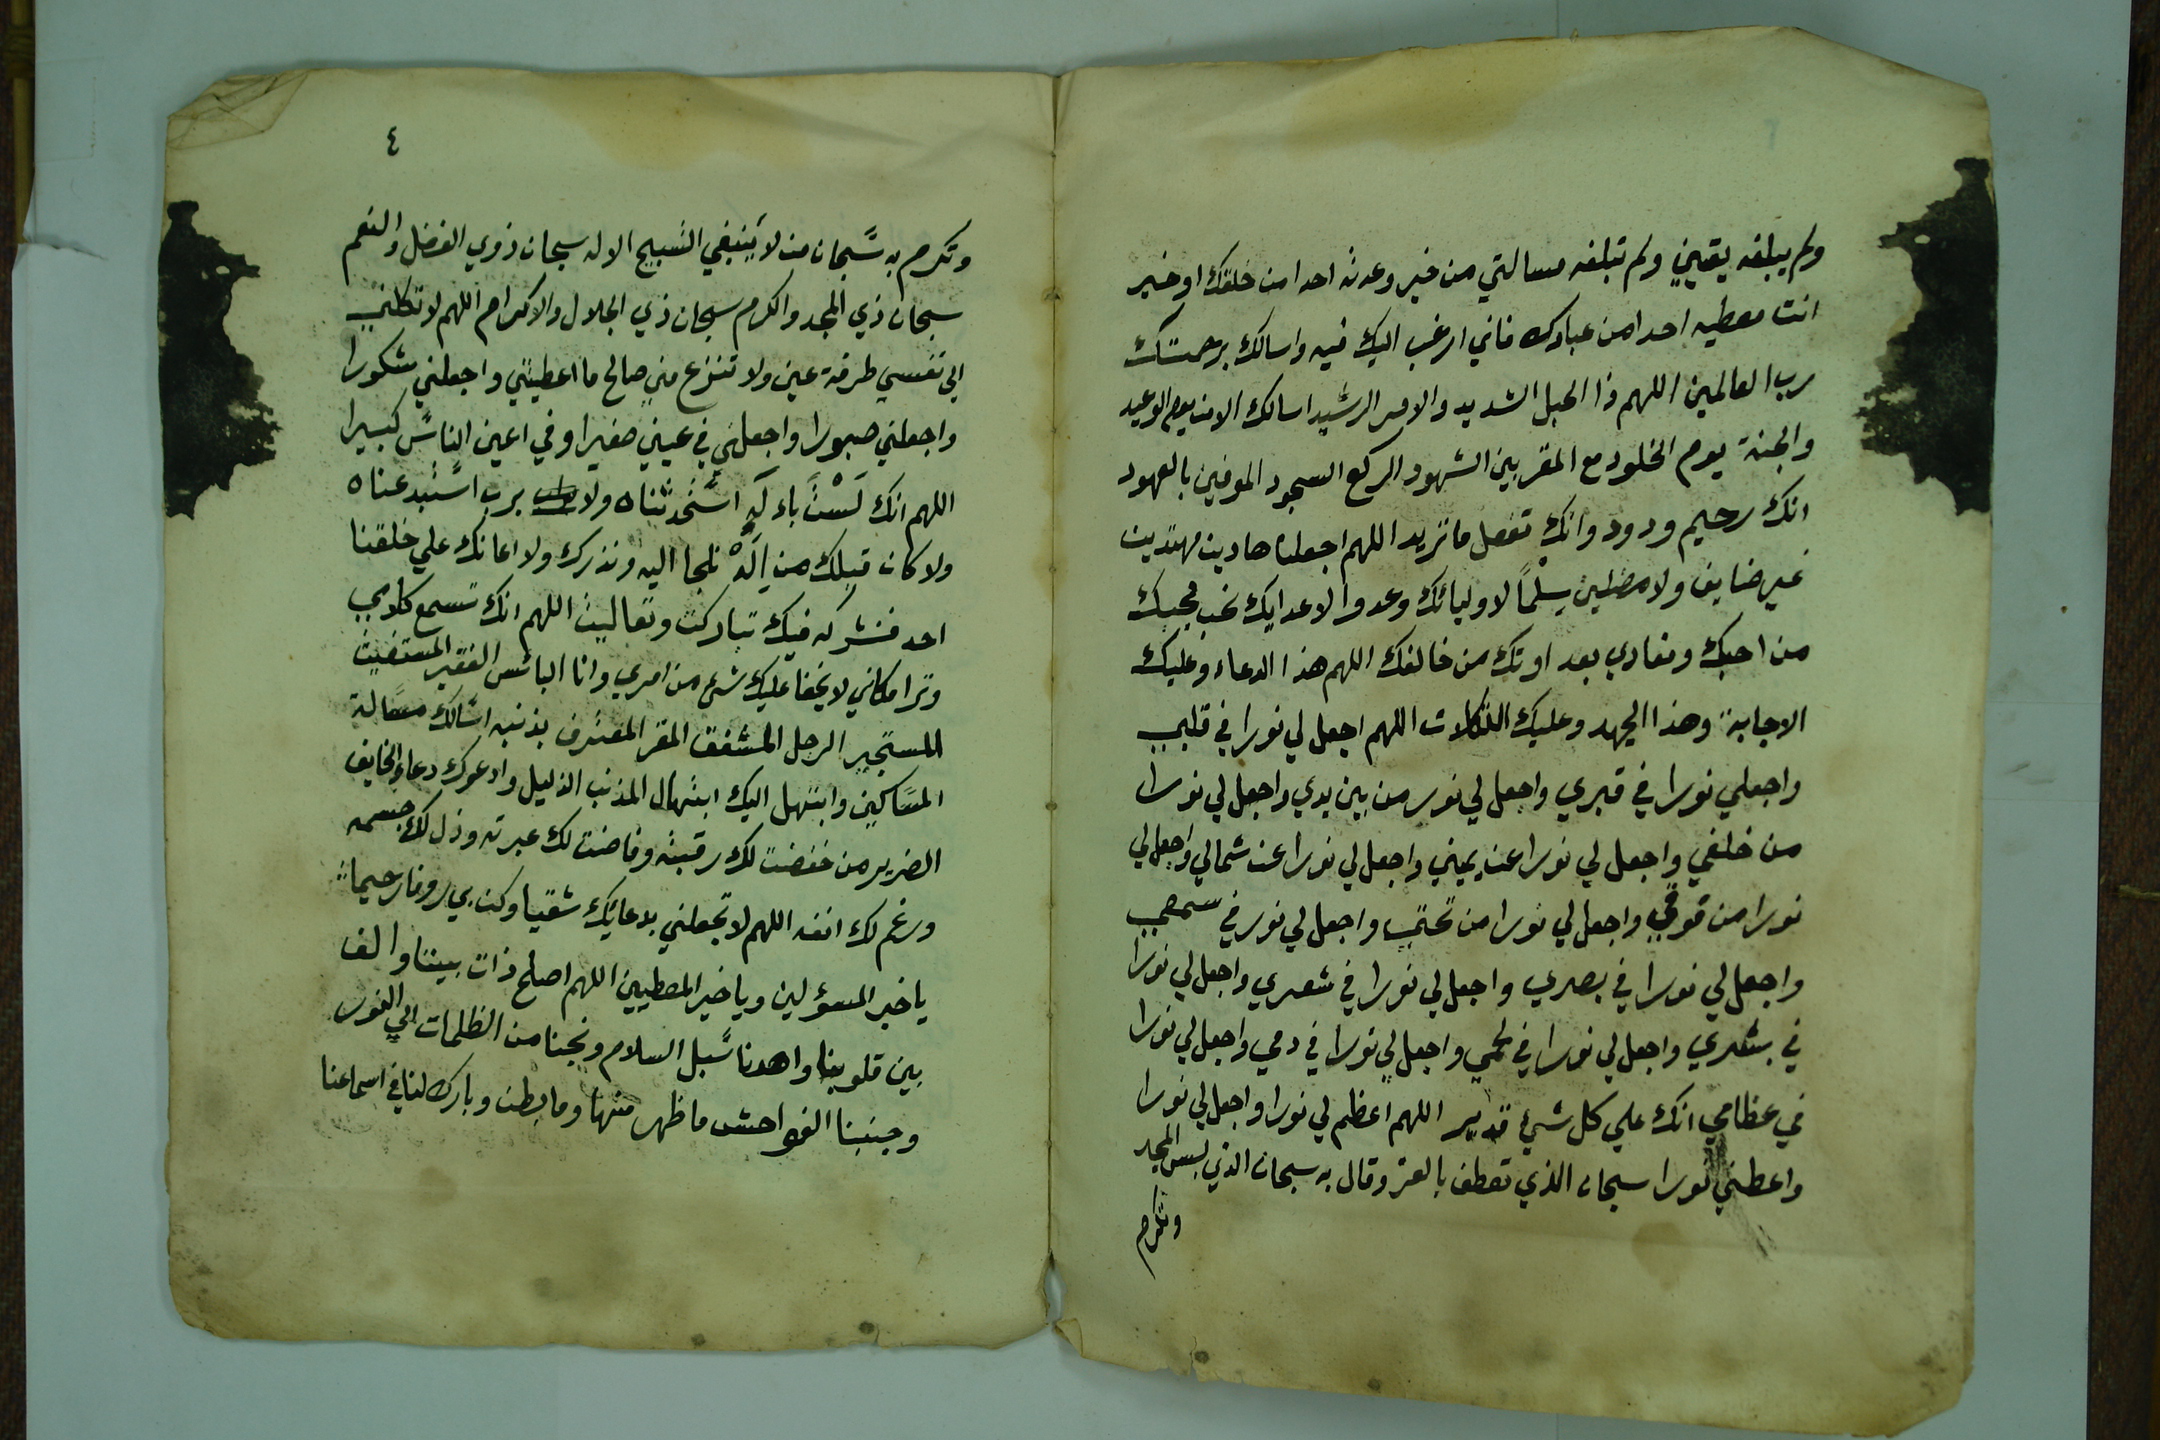 ولم يبلغه يقيني ولم تبلغه مسالتي من خير وعدته احدا من خلقك او خير
انت معطيه احدا من عبادك فاني ارغب اليك فيه واسالك برحمتك
رب العالمين اللهم ذا الحبل الشديد والامر الرشيد اسالك الامن يوم الوعيد
والجنة يوم الخلود مع المقربين الشهود الركع السجود الموفين بالعهود
انك رحيم ودود وانك تفعل ما تريد اللهم اجعلنا هادين مهتدين
غير ضاين ولا مضلين سِلْماً لاوليائك وعدوا لاعدايك نحب بحبك
من احبك ونعادي بعداوتك من خالفك اللهم هذا الدعاء وعليك
الاجابة وهذا الجهد وعليك التكلات اللهم اجعل لي نورا في قلبي
واجعلي نورا في قبري واجعل لي نور من بين يدي واجعل لي نورا
من خلفي واجعل لي نورا عن يميني واجعل لي نورا عن شمالي واجعل لي
نورا من فوقي واجعل لي نورا من تحتي واجعل لي نور في سمعي
واجعل لي نورا في بصري واجعل لي نورا في شعري واجعل لي نورا
في بشري واجعل لي نورا في لحمي واجعل لي نورا في دمي واجعل لي نورا
في عظامي انك علي كل شيء قدير اللهم اعظم لي نورا واجعل لي نورا
واعطني نورا سبحان الذي تعطف بالعز وقال به سبحان الذي لبس المجد
وتكرم
٤
وتكرم به سبحان من لا ينبغي التسبيح الا له سبحان ذوي الفضل والنعم
سبحان ذي المجد والكرم سبحان ذي الجلال والاكرام اللهم لا تكلني
الي نفسي طرفة عين ولا تنزع مني صالح ما اعطيتني واجعلني شكورا
واجعلني صبورا واجعلني في عيني صغيرا وفي اعين الناس كبيرا
اللهم انك لَسْتَ باءله استحدثناه ولا برب استبدعناه
ولا كان قبلك من اِلَهْ نلجا اليه ونذرك ولا اعانك علي خلقنا
احد فنشركه فيك تباركت وتعاليت اللهم انك تسمع كلامي
وترا مكاني لا يخفا عليك شيء من امري وانا البائس الفقير المستغيث
المستجير الوجل المشفق المقر المعترف بذنبه اسالك مسالة
المساكين وابتهل اليك ابتهال المذنب الذليل وادعوك دعاء الخايف
الضرير من خضعت لك رقبته وفاضت لك عبرته وذل لك جسمه
ورغم لك انفه اللهم لا تجعلني بدعائك شقيا وكن بي روفا رحيما
يا خير المسؤلين ويا خير المعطيين اللهم اصلح ذات بيننا والف
بين قلوبنا واهدنا سبل السلام ونجنا من الظلمات الي النور
وجنبنا الفواحش ما ظهر منها وما بطن وبارك لنا في اسماعنا